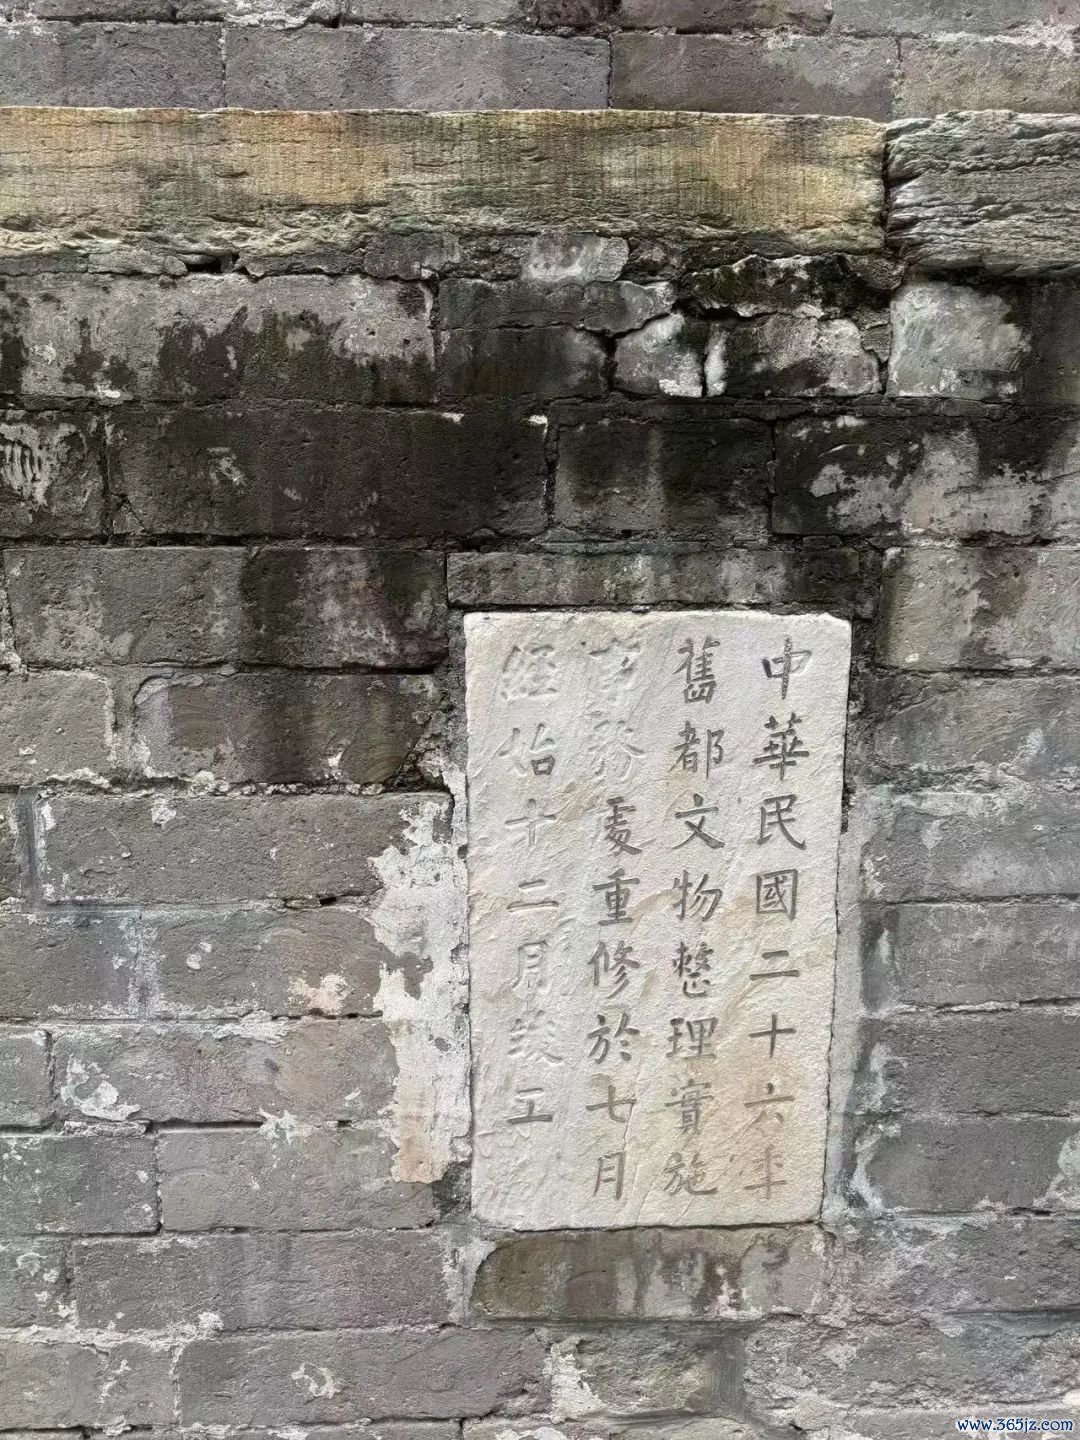 中華民國二十六年
舊都文物整理實施
事務處重修於七月
經始十二月竣工
www.365jz.com